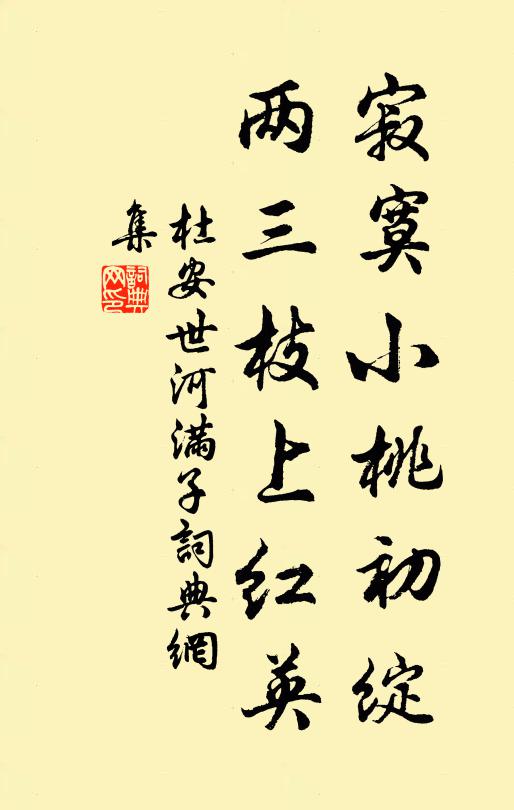 寂寞小桃初綻
两三枝上红英
杜安世河满子詞典網
集
詞典网印